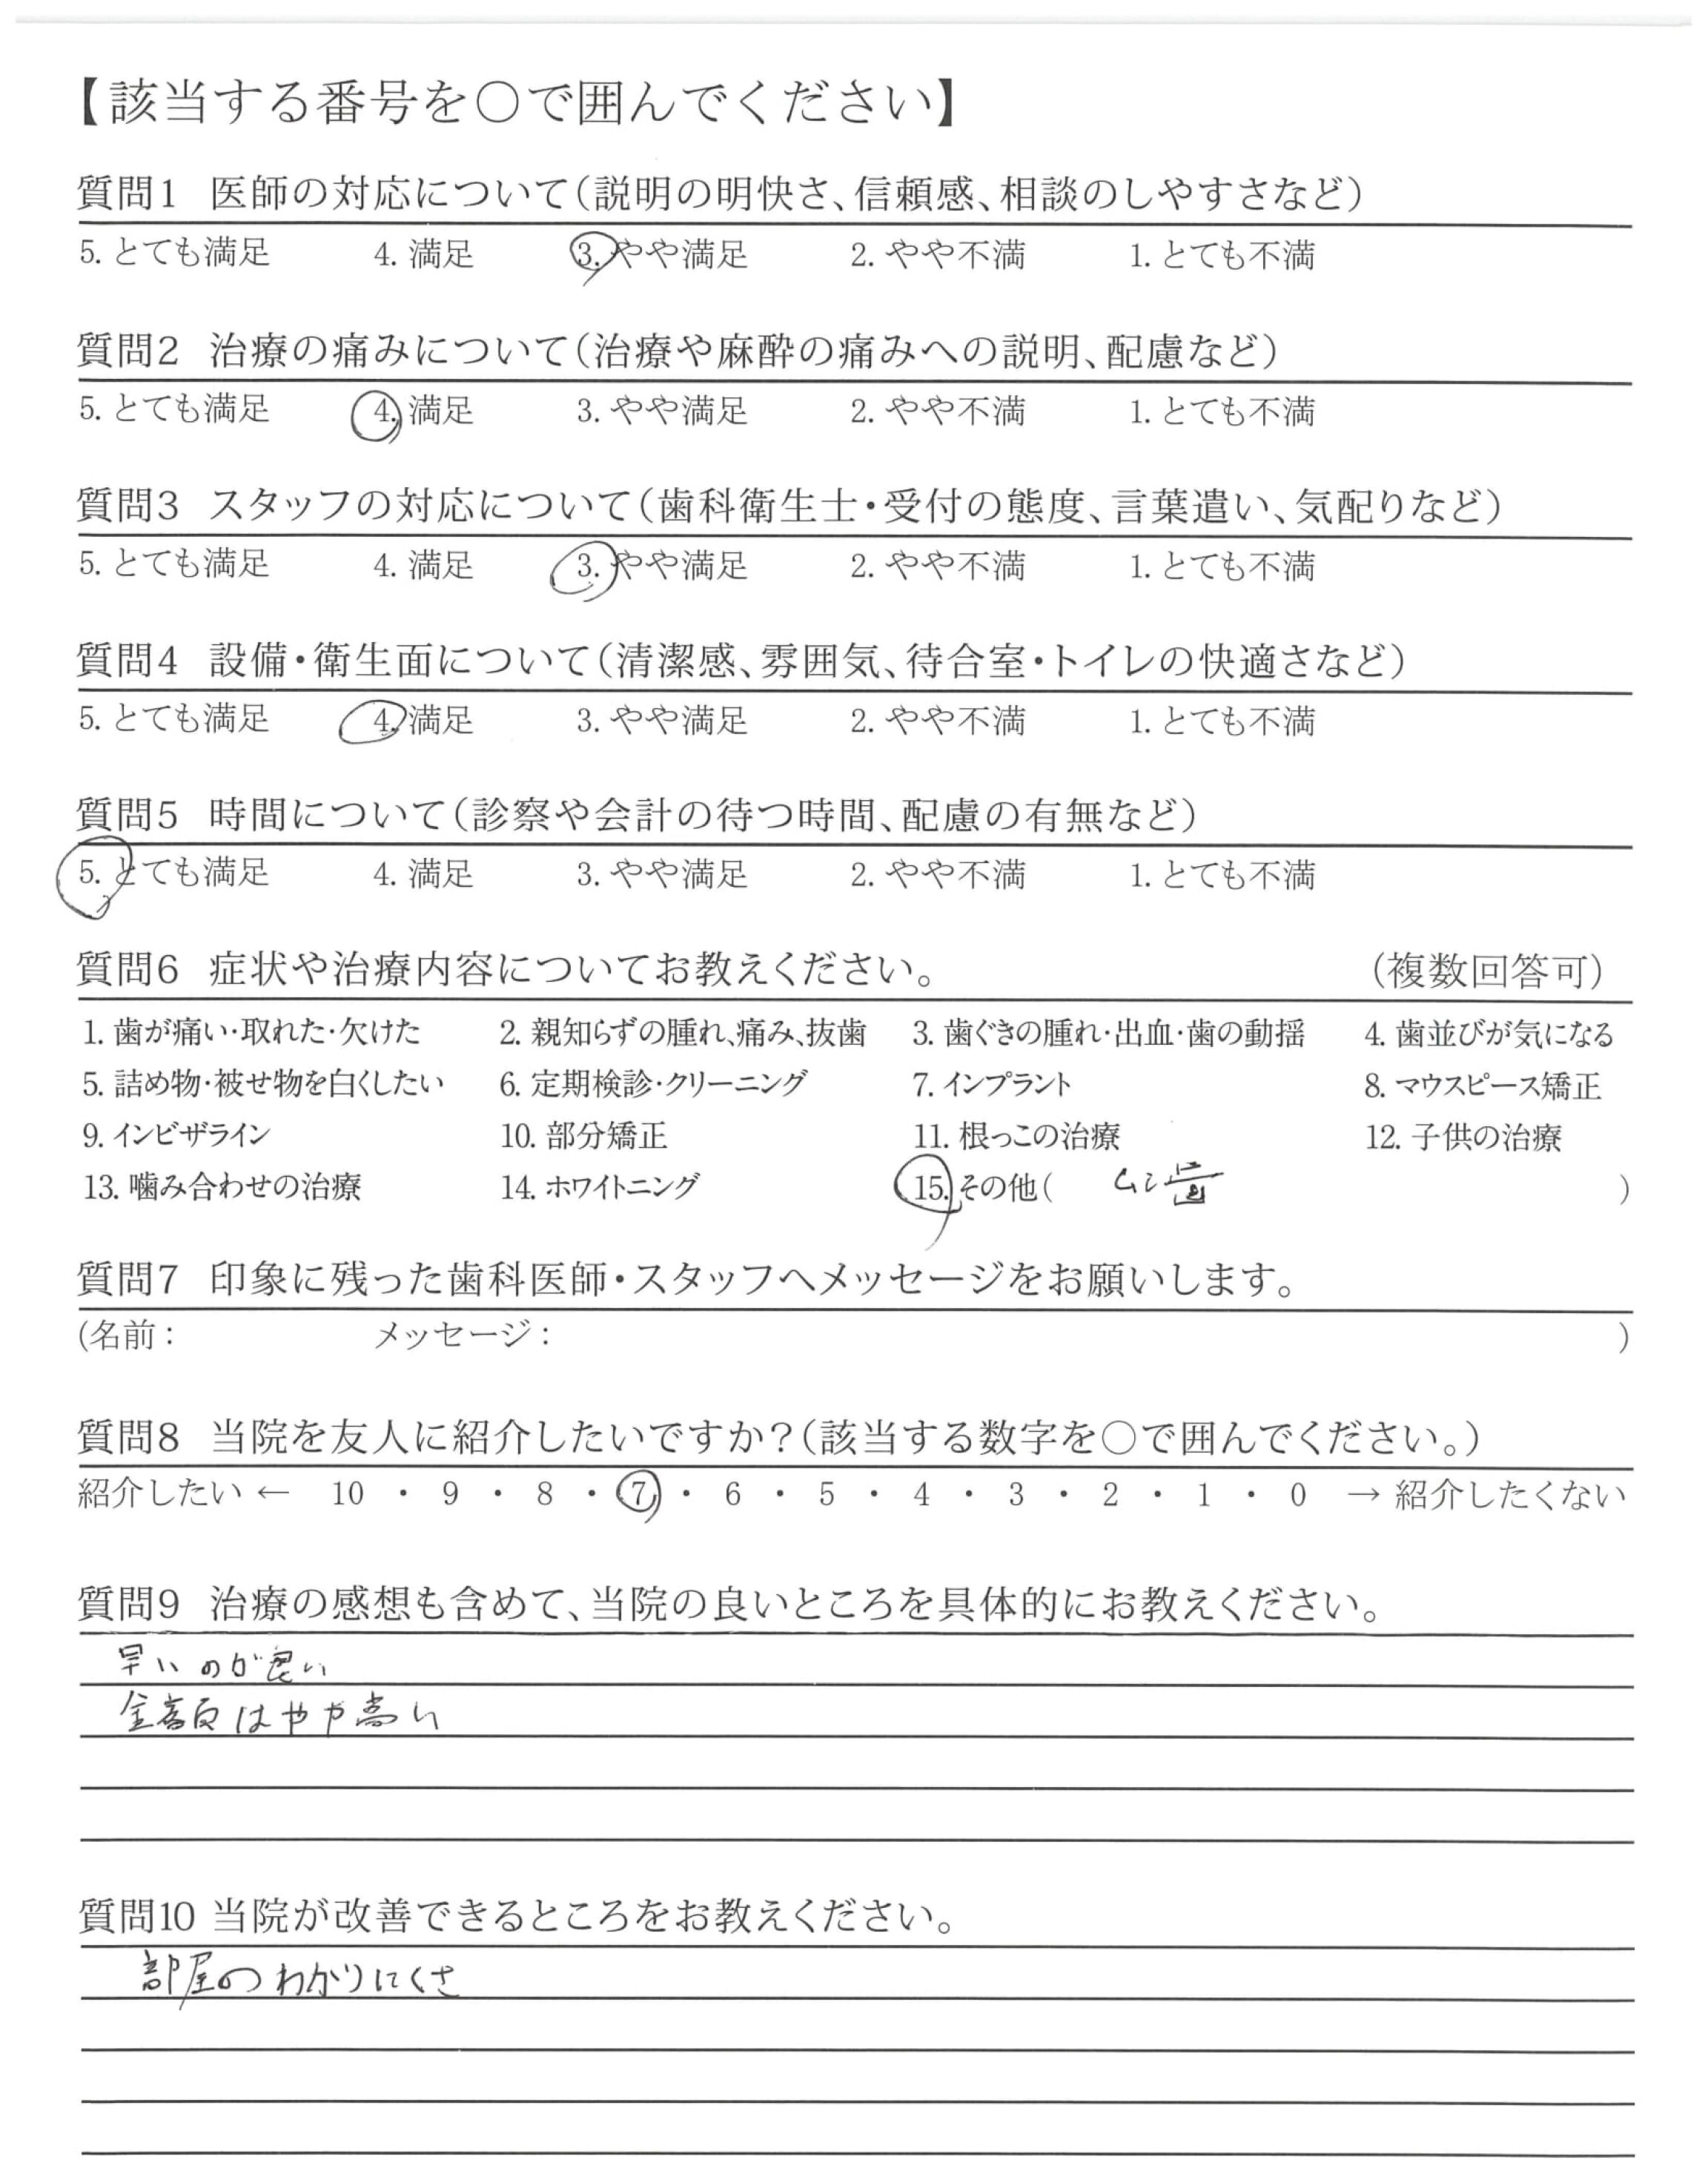 【該当する番号を○で囲んでください】
質問1 医師の対応について(説明の明快さ、信頼感、相談のしやすさなど)
5. とても満足 4. 満足 3. やや満足 2. やや不満 1. とても不満
質問2 治療の痛みについて(治療や麻酔の痛みへの説明、配慮など)
5. とても満足 4. 満足 3. やや満足 2. やや不満 1. とても不満
質問3 スタッフの対応について(歯科衛生士・受付の態度、言葉遣い、気配りなど)
5. とても満足 4. 満足 3. やや満足 2. やや不満 1. とても不満
質問4 設備・衛生面について(清潔感、雰囲気、待合室・トイレの快適さなど)
5. とても満足 4. 満足 3. やや満足 2. やや不満 1. とても不満
質問5 時間について(診察や会計の待つ時間、配慮の有無など)
5. とても満足 4. 満足 3. やや満足 2. やや不満 1. とても不満
質問6 症状や治療内容についてお教えください。 (複数回答可)
1. 歯が痛い・取れた・欠けた 2. 親知らずの腫れ、痛み、抜歯 3. 歯ぐきの腫れ・出血・歯の動揺 4. 歯並びが気になる
5. 詰め物・被せ物を白くしたい 6. 定期検診・クリーニング 7. インプラント 8. マウスピース矯正
9. インビザライン 10. 部分矯正 11. 根っこの治療 12. 子供の治療
13. 噛み合わせの治療 14. ホワイトニング 15. その他( ムシ歯 )
質問7 印象に残った歯科医師・スタッフへメッセージをお願いします。
(名前: メッセージ: )
質問8 当院を友人に紹介したいですか?(該当する数字を○で囲んでください。)
紹介したい ← 10 ・ 9 ・ 8 ・ 7 ・ 6 ・ 5 ・ 4 ・ 3 ・ 2 ・ 1 ・ 0 → 紹介したくない
質問9 治療の感想も含めて、当院の良いところを具体的にお教えください。
早いのが良い
金額はやや高い
質問10 当院が改善できるところをお教えください。
部屋のわかりにくさ